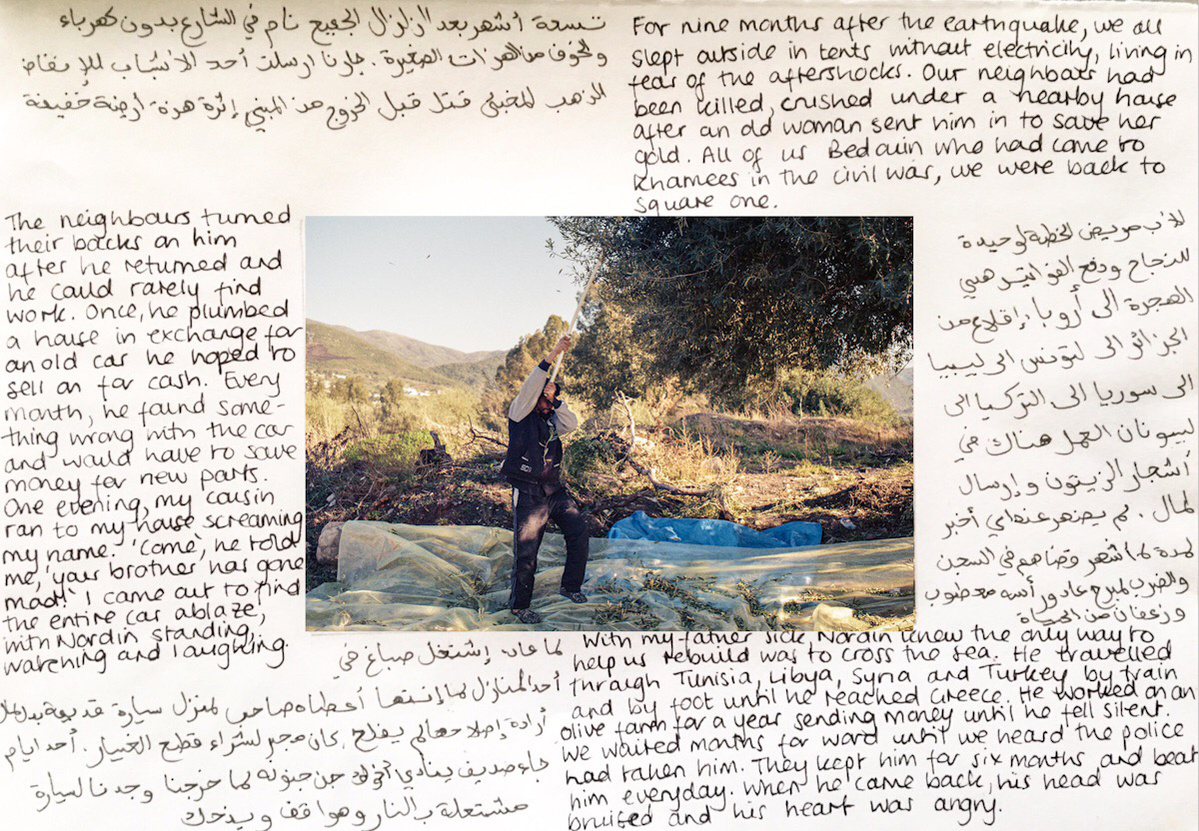 تسعة أشهر بعد الزلزال الجميع نام في الشارع بدون كهرباء
من الهزات الصغيرة . جارنا ارسلت أحد الأنشباب
الذهب المخبئ قتل قبل الخروج من المبني إثرة هزة أرضية خفيفة
For nine months after the earthquake, we all
slept outside in tents without electricity, living in
fear of the aftershocks. Our neighbours had
been killed, crushed under a nearby house
after an old woman sent him in to save her
gold. All of us Bedouin who had come to
Khamees in the civil war, we were back to
square one.
للأب مريض الخطة لوحيدة
للنجاح ودفع الفواتير هيي
الهجرة الى أروبا : إقلاع من
الجزائر الى لتونس الى ليبيا
الى سوريا الى التركيا الى
ليونان العمل هناك في
أشجار الزيتون وإرسال
لمال . لم أخبر
لمدة شهر في السجن
والضرب لمبرح أسه
من الحياة
With my father sick, Nordin knew the only way to
help us rebuild was to cross the sea. He travelled
through Tunisia, Libya, Syria and Turkey by train
and by foot until he reached Greece. He worked on an
olive farm for a year sending money until he fell silent.
We waited months for word until we heard the police
had taken him. They kept him for six months and beat
him everyday. When he came back, his head was
bruised and his heart was angry.
The neighbours turned
their backs on him
after he returned and
he could rarely find
work. Once, he plumbed
a house in exchange for
an old car he hoped to
sell on for cash. Every
month, he found some-
thing wrong with the car
and would have to save
money for new parts.
One evening, my cousin
ran to my house screaming
my name. 'Come', he told
me, 'your brother has gone
mad!' I came out to find
the entire car ablaze,
with Nordin standing,
watching and laughing.
لما عاد إشتغل صباغ في
أحد المنازل لما أعطاه صاحب لمنزل سيارة قديمة
أرادة يفلح كان مجبر لشراء قطع الغييار . أحد ايام
جاء صديق ينادي أخوك جن جنونه لما خرجنا وجدنا لسيارة
مشتعلة بالنار وهو اقف ويذحك